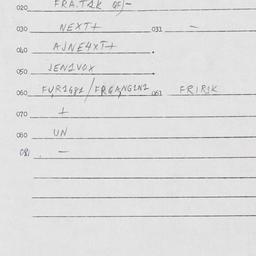 020 FRA.T4K
030 NEXT+ 031 —
040 AJNE4XT+ .
050 JEN1VOX .
060 FVR1G81/FRGANG1N1 061 FRIR1K
070 1
080 UN
081 . —